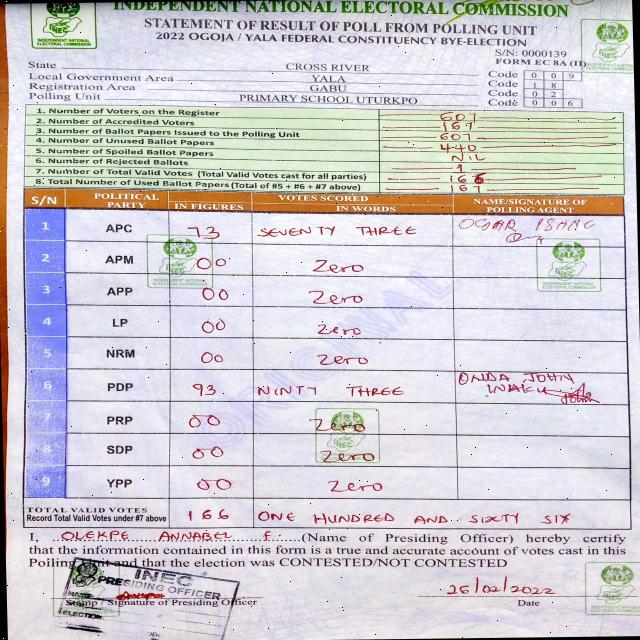 INDEPENDENT NATIONAL ELECTORAL COMMISSION
STATEMENT OF RESULT OF POLL FROM POLLING UNIT
2022 OGOJA / YALA FEDERAL CONSTITUENCY BYE-ELECTION
S/N: 0000139
FORM EC 8A (II)
State CROSS RIVER Code 0 0 9
Local Government Area YALA Code 1 8
Registration Area GABU Code 0 2
Polling Unit PRIMARY SCHOOL UTURKPO Code 0 0 6
1. Number of Voters on the Register 601
2. Number of Accredited Voters 167
3. Number of Ballot Papers Issued to the Polling Unit 601
4. Number of Unused Ballot Papers 440
5. Number of Spoiled Ballot Papers NIL
6. Number of Rejected Ballots 1
7. Number of Total Valid Votes (Total Valid Votes cast for all parties) 166
8. Total Number of Used Ballot Papers (Total of #5 + #6 + #7 above) 167
S/N POLITICAL PARTY VOTES SCORED IN FIGURES IN WORDS NAME/SIGNATURE OF POLLING AGENT
1 APC 73 SEVENTY THREE
2 APM 00 Zero
3 APP 00 Zero
4 LP 00 Zero
5 NRM 00 Zero
6 PDP 93 NINTY THREE ONDA JOHN
7 PRP 00 Zero
8 SDP 00 Zero
9 YPP 00 Zero
TOTAL VALID VOTES
Record Total Valid Votes under #7 above 166 ONE HUNDRED AND SIXTY SIX
I, OLEKPE ANNABEL F. (Name of Presiding Officer) hereby certify
that the information contained in this form is a true and accurate account of votes cast in this
Polling Unit and that the election was CONTESTED/NOT CONTESTED
INEC
PRESIDING OFFICER
26/02/2022
Stamp / Signature of Presiding Officer Date